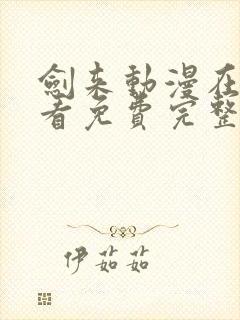 劍来動漫在
看免費完整
伊茹茹